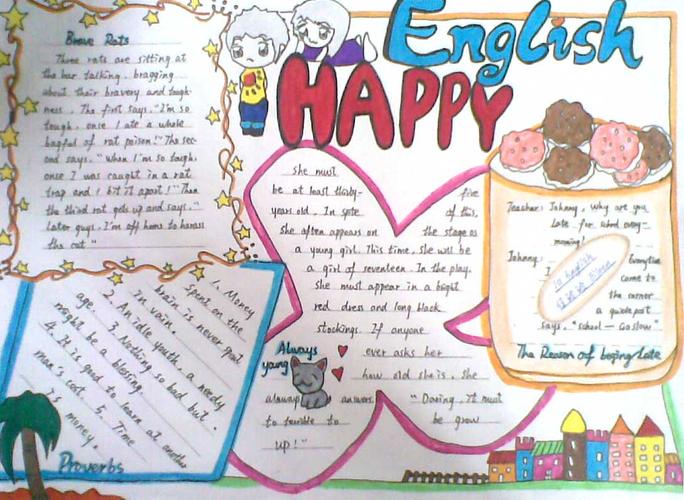 English
HAPPY
Brave Rats
Three rats are sitting at
the bar talking, bragging
about their bravery and tough-
ness. The first says. "I'm so
tough, once I ate a whole
bagful of rat poison!" The sec-
ond says. "When I'm so tough,
once I was caught in a rat
trap and I bit it apart!" Then
the third rat gets up and says. "
Later guys, I'm off home to harass
the cat."
She must
be at least thirty- five
years old. In spite of this,
she often appears on the stage as
a young girl. This time, she will be
a girl of seventeen. In the play,
She must appear in a bright
red dress and long black
stockings. If anyone
ever asks her
how old she is, she
always answers. "Daring, it must
be terrible to be grow
up!"
Always
yang
Teacher: Johnny, Why are you
Late for school every-
morning!
Johnny: Everytime
I come to
the corner
a guide post
says, "school - Go slow"
The Reason of beging Late
1. Money
spent on the
brain is never spent
in vain.
2. An idle youth, a needy
age. 3. Nothing so bad but
might be a blessing.
4. It is good to learn at another
man's cost. 5. Time
Is money.
Proverbs